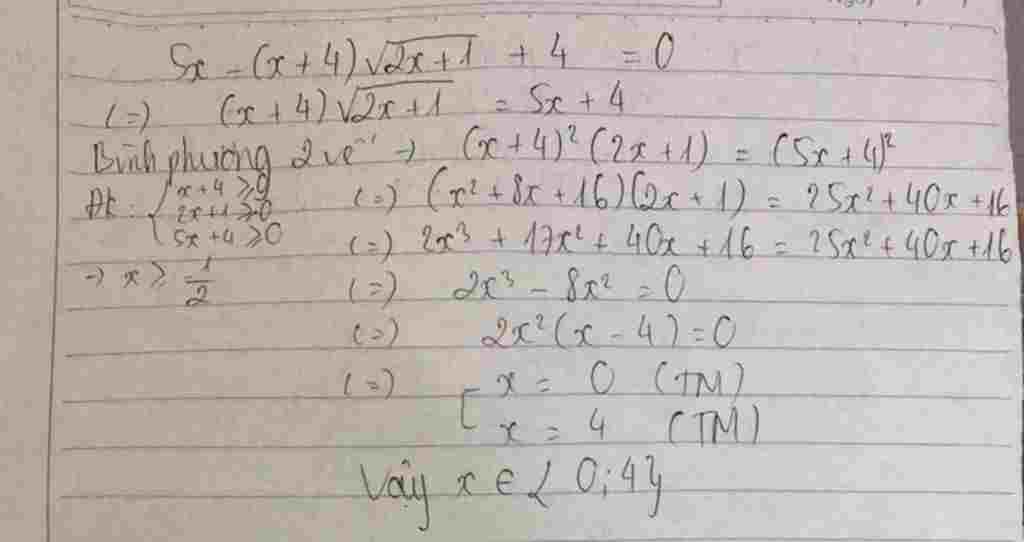 5x - (x+4)√(2x+1) + 4 = 0
(=) (x+4)√(2x+1) = 5x + 4
Bình phương 2 vế → (x+4)² (2x+1) = (5x+4)²
Đk: { x+4 ≥ 0
2x+1 ≥ 0
5x+4 ≥ 0
→ x ≥ 1/2
(=) (x² + 8x + 16)(2x + 1) = 25x² + 40x + 16
(=) 2x³ + 17x² + 40x + 16 = 25x² + 40x + 16
(=) 2x³ - 8x² = 0
(=) 2x² (x - 4) = 0
(=) [ x = 0 (TM)
x = 4 (TM)
Vậy x ∈ {0; 4}